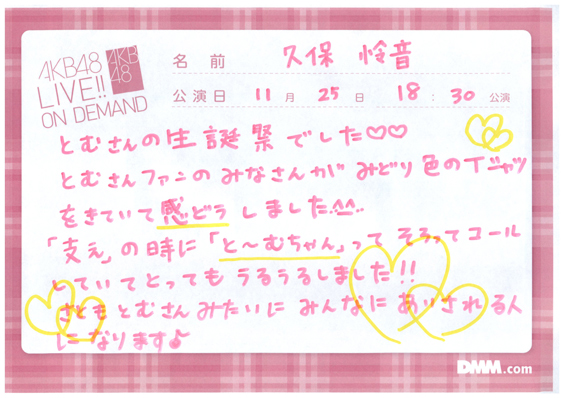 AKB48
LIVE!!
ON DEMAND
AKB
48
名前 久保 怜音
公演日 11月 25日 18:30 公演
とむさんの生誕祭でした♡♡
とむさんファンのみなさんがみどり色のTシャツ
をきていて感どうしました.^^.
「支え」の時に「と〜むちゃん」ってそろってコール
とていてとってもうるうるしました!!
さともとむさんみたいにみんなにあいされる人
になります♪
DMM.com